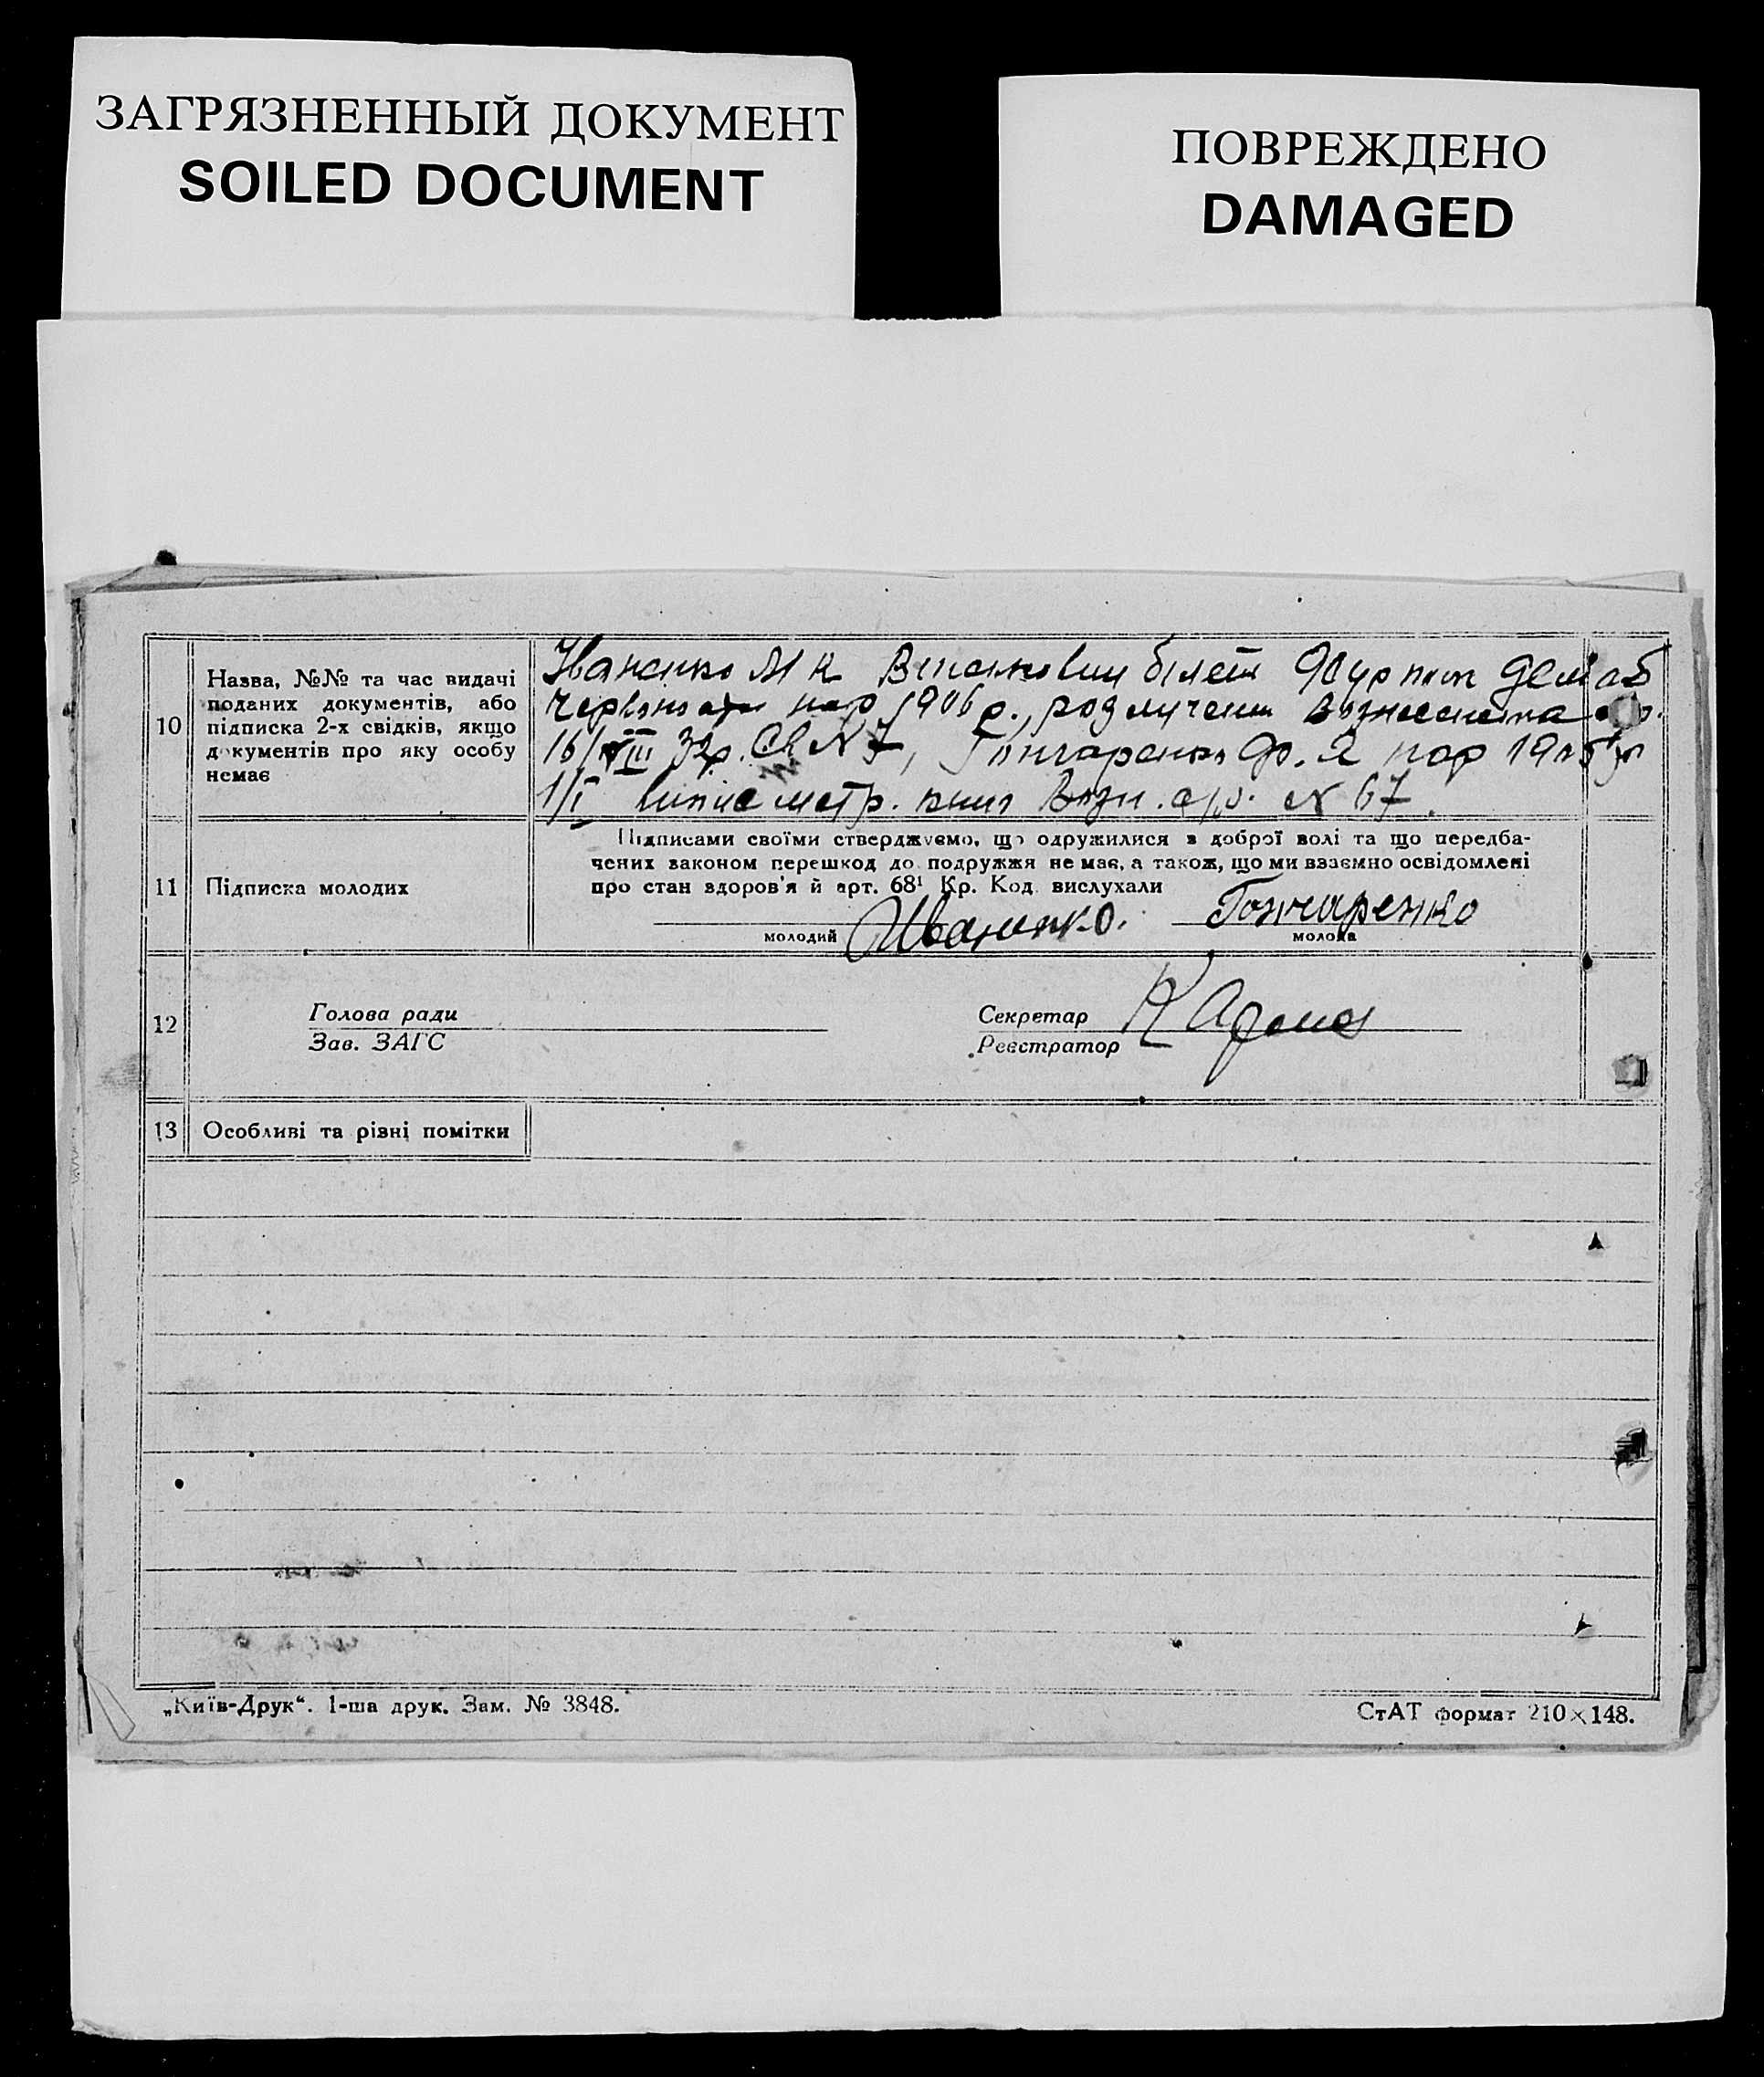 ЗАГРЯЗНЕННЫЙ ДОКУМЕНТ
SOILED DOCUMENT
ПОВРЕЖДЕНО
DAMAGED
10
Назва, №№ та час видачі
поданих документів, або
підписка 2-х свідків, якщо
документів про яку особу
немає
Іваненко М К білет
1906 р.,
16/VIII 32р. № 7, Гончаренко 
1/I метр. книг № 67
11
Підписка молодих
Підписами своїми стверджуємо, що одружилися з доброї волі та що передба-
чених законом перешкод до подружжя не має, а також, що ми взаємно освідомлені
про стан здоров'я й арт. 68¹ Кр. Код. вислухали
молодий Иваненко. Гончаренко
молода
12
Голова ради
Зав. ЗАГС
Секретар
Реєстратор
13
Особливі та різні помітки
„Київ-Друк“. 1-ша друк. Зам. № 3848.
СтАТ формат 210×148.